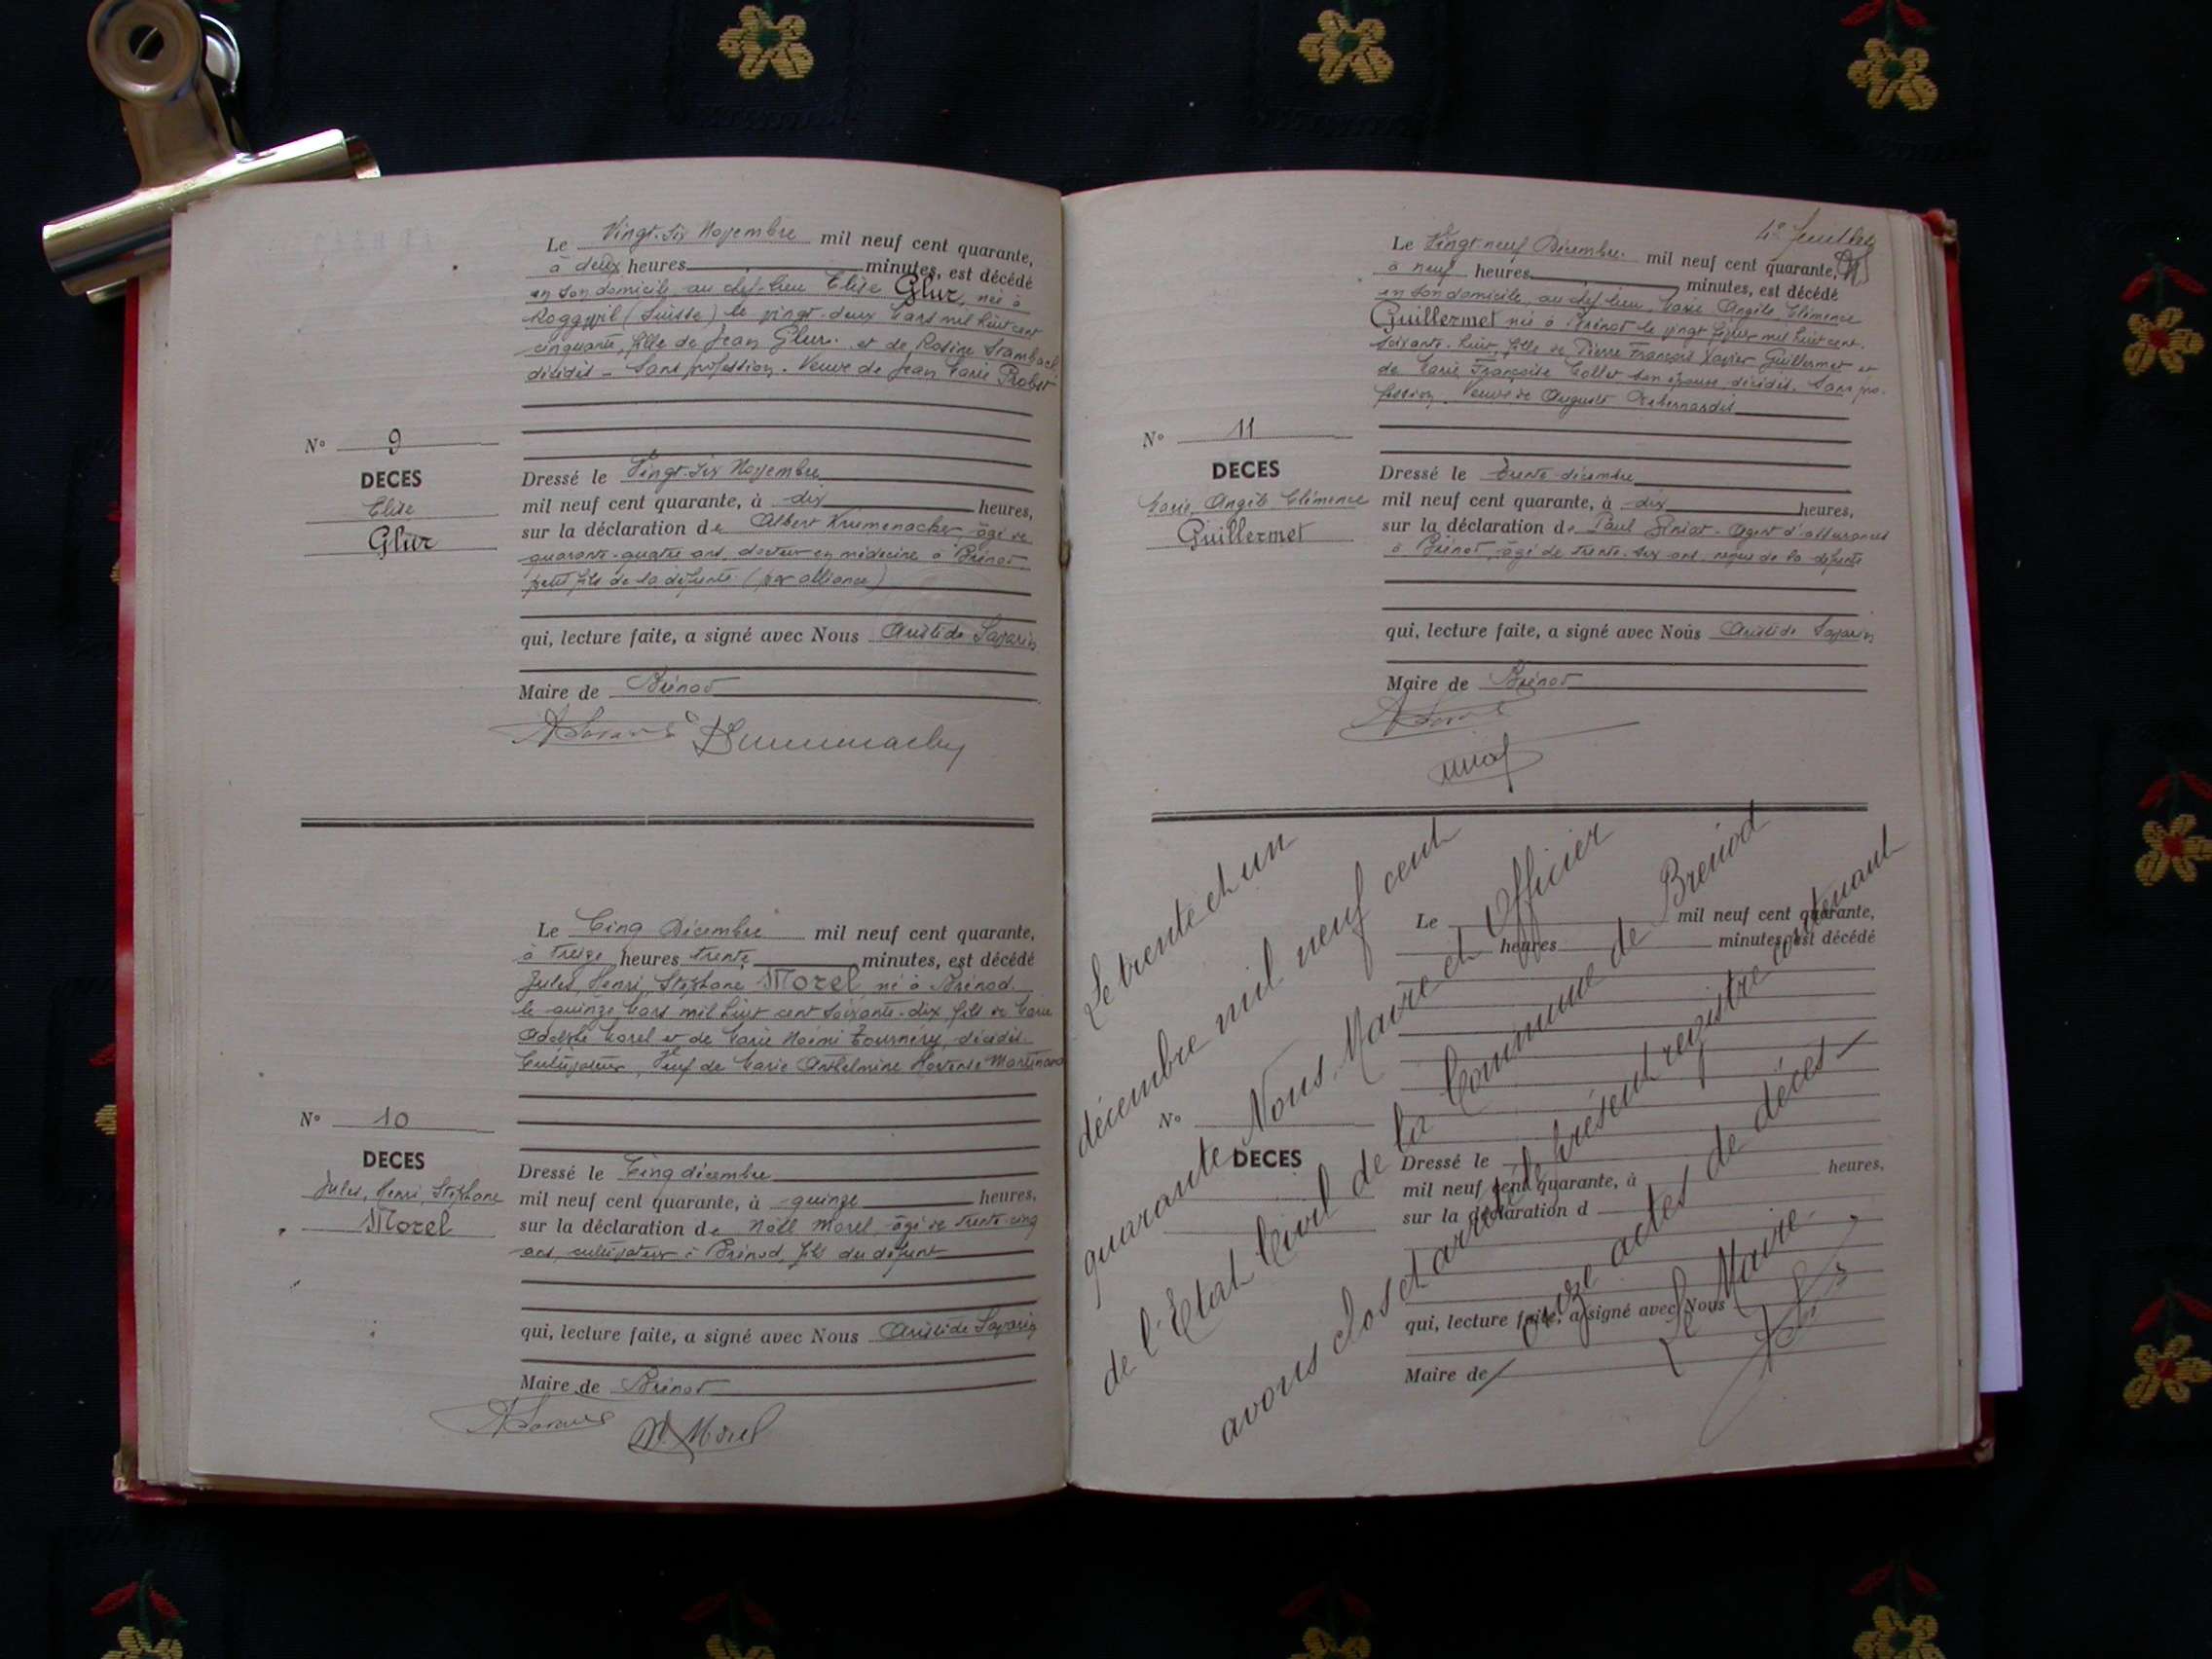 Le Vingt-six Novembre mil neuf cent quarante,
à deux heures minutes, est décédé
en son domicile, au chef-lieu Elise Glur, née à
Roggwil (Suisse) le vingt-deux Mars mil huit cent
cinquante, fille de Jean Glur et de Rosine Strambach
décédés - Sans profession. Veuve de Jean Marie Probst
N° 9
DECES
Elise
Glur
Dressé le Vingt-six Novembre
mil neuf cent quarante, à dix heures,
sur la déclaration de Albert Krumenacher, âgé de
quarante-quatre ans, docteur en médecine à Brénod
petit fils de la défunte (par alliance)
qui, lecture faite, a signé avec Nous Aristide Savarin
Maire de Brénod
Le Cinq Décembre mil neuf cent quarante,
à treize heures trente minutes, est décédé
Jules, Henri, Stéphane Morel, né à Brénod
le quinze Mars mil huit cent soixante-dix fils de Marie
Adolphe Morel et de Marie Noémi Tournéry, décédés.
Cultivateur, Veuf de Marie Anthelmine Hortense Martinand
N° 10
DECES
Jules, Henri, Stéphane
Morel
Dressé le Cinq décembre
mil neuf cent quarante, à quinze heures,
sur la déclaration de Noël Morel, âgé de trente-cinq
ans, cultivateur à Brénod, fils du défunt
qui, lecture faite, a signé avec Nous Aristide Savarin
Maire de Brénod
N. Morel
4e feuillet
Le Vingt neuf Décembre mil neuf cent quarante,
à neuf heures minutes, est décédé
en son domicile, au chef-lieu, Marie Angèle Clémence
Guillermet née à Brénod le vingt février mil huit cent
soixante-huit, fille de Pierre François Xavier Guillermet et
de Marie Françoise Collet son épouse, décédés. Sans pro-
fession. Veuve de Auguste Debernardis
N° 11
DECES
Marie, Angèle Clémence
Guillermet
Dressé le trente décembre
mil neuf cent quarante, à dix heures,
sur la déclaration de Paul Siniat Agent d'assurances
à Brénod, âgé de trente-six ans, neveu de la défunte
qui, lecture faite, a signé avec Nous Aristide Savarin
Maire de Brénod
Le mil neuf cent quarante,
heures minutes, est décédé
N°
DECES
Dressé le
mil neuf cent quarante, à heures,
sur la déclaration d
qui, lecture faite, a signé avec Nous
Maire de
Le trente et un
décembre mil neuf cent
quarante Nous, Maire et Officier
de l'Etat Civil de la Commune de Brénod
avons clos et arrêté le présent registre contenant
onze actes de décès
Le Maire